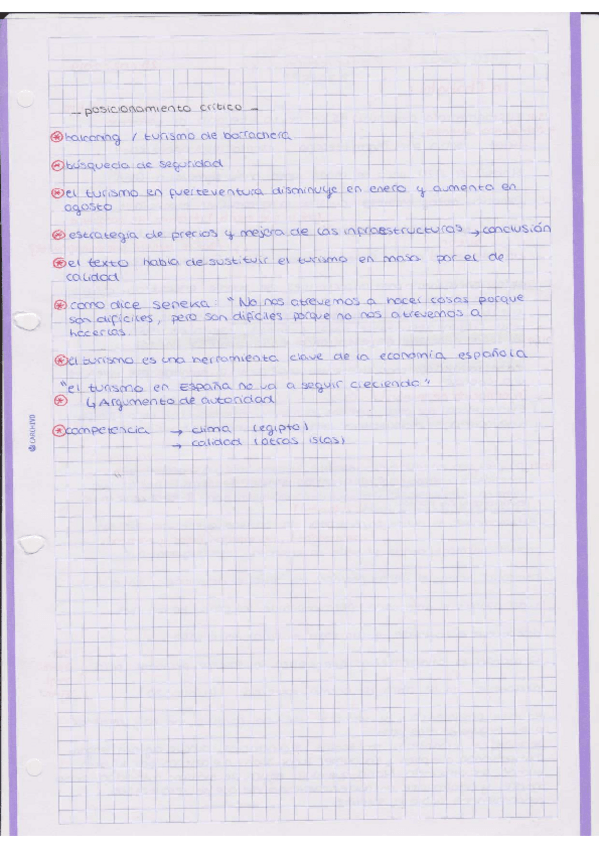 - posicionamiento crítico -
balconing / turismo de borrachera
búsqueda de seguridad
el turismo en fuerteventura disminuye en enero y aumenta en
agosto
estrategia de precios y mejora de las infraestructuras → conclusión
el texto habla de sustituir el turismo en masa por el de
calidad
como dice seneka "No nos atrevemos a hacer cosas porque
son difíciles, pero son difíciles porque no nos atrevemos a
hacerlas.
el turismo es una herramienta clave de la economía española
"el turismo en España no va a seguir creciendo"
↳ Argumento de autoridad
competencia → clima (egipto)
→ calidad (otras islas)